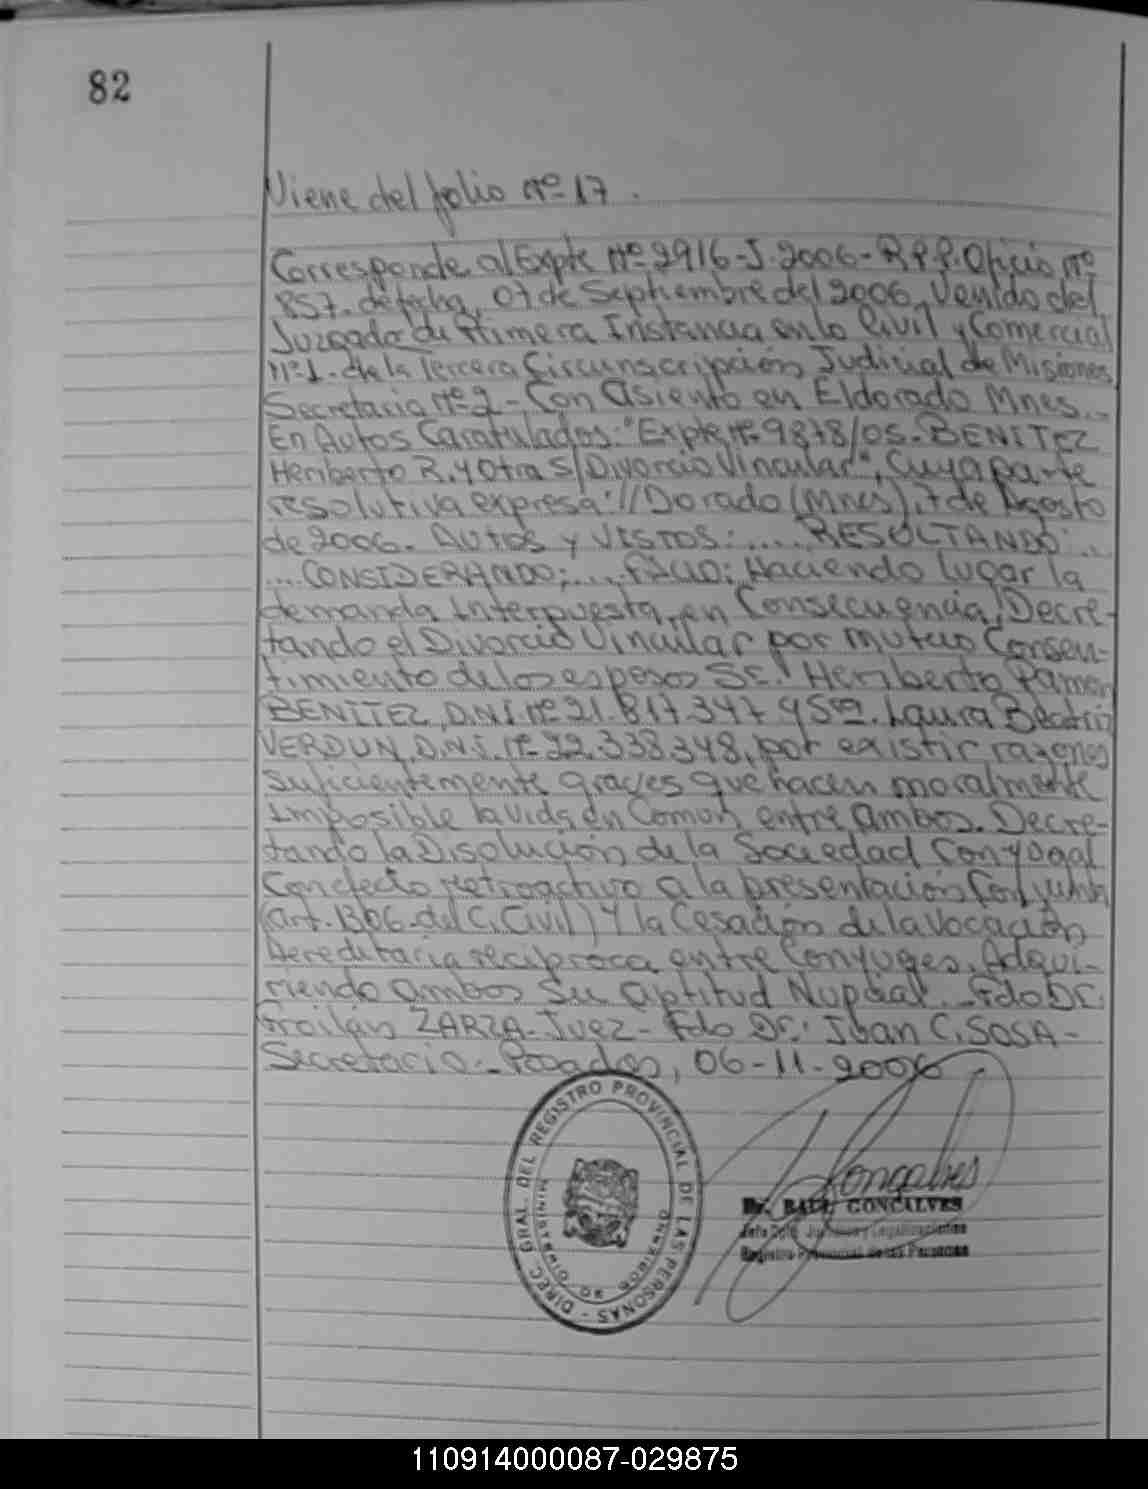 82
Viene del folio Nº 17.
Corresponde al Expte Nº 2916-J-2006-R.P.P. Oficio Nº
857. de fecha, 07 de Septiembre del 2006, Venido del
Juzgado de Primera Instancia en lo Civil y Comercial
nº1. de la Tercera Circunscripción Judicial de Misiones
Secretaria Nº 2 - Con Asiento en Eldorado Mnes.-
En Autos Caratulados: "Expte Nº 9878/05. BENITEZ
Heriberto R. y Otra S/Divorcio Vincular", Cuya parte
resolutiva expresa: //Dorado (Mnes), 7 de Agosto
de 2006. AUTOS y VISTOS: .... RESULTANDO: ..
... CONSIDERANDO; .... FALLO: Haciendo lugar la
demanda Interpuesta, en Consecuencia, Decre-
tando el Divorcio Vincular por mutuo Consen-
timiento de los esposos Sr. Heriberto Ramon
BENITEZ, D.N.I. Nº 21.817.347 y Sra. Laura Beatriz
VERDUN, D.N.I. Nº 22.338.348, por existir razones
suficientemente graves que hacen moralmente
Imposible la vida en Común entre ambos. Decre-
tando la Disolución de la Sociedad Conyugal
Con efecto retroactivo a la presentación Conjunta
(art. 1306 del C. Civil) y la Cesación de la vocación
hereditaria recíproca entre Conyuges, Adqui-
riendo ambos su aptitud Nupcial. Fdo Dr.
Froilán ZARZA-Juez- Fdo Dr: Juan C. SOSA-
Secretario.- Posadas, 06-11-2006
DIREC. GRAL. DEL REGISTRO PROVINCIAL DE LAS PERSONAS -
MINISTERIO DE GOBIERNO
Gonçalves
Dr. RAUL GONCALVES
Registro Provincial de las Personas
110914000087-029875